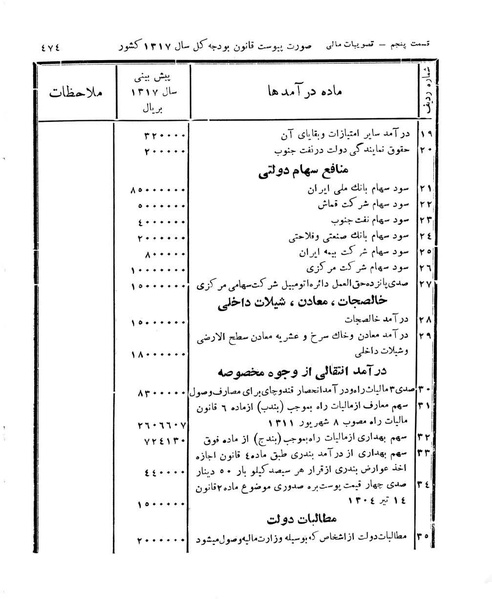 قسمت پنجم – تصویبات مالی صورت پیوست قانون بودجه کل سال ۱۳۱۷ کشور ۴۷۴
شماره ردیف ماده درآمدها پیش بینی سال ۱۳۱۷ بریال ملاحظات
۱۹ درآمد سایر امتیازات وبقایای آن ۳۲۰۰۰۰۰
۲۰ حقوق نمایندگی دولت درنفت جنوب ۲۰۰۰۰۰
منافع سهام دولتی
۲۱ سود سهام بانك ملی ایران ۸۵۰۰۰۰۰۰
۲۲ سود سهام شرکت قماش ۵۰۰۰۰۰۰
۲۳ سود سهام نفت جنوب ۴۰۰۰۰۰۰
۲۴ سود سهام بانك صنعتی وفلاحتی ۲۰۰۰۰۰۰
۲۵ سود سهام شرکت بیمه ایران ۸۰۰۰۰۰
۲۶ سود سهام شرکت مرکزی ۱۰۰۰۰۰۰۰
۲۷ صدی پانزده حق العمل دائره اتومبیل شرکت سهامی مرکزی ۱۵۰۰۰۰۰۰
خالصجات ، معادن ، شیلات داخلی
۲۸ درآمد خالصجات ۱۵۰۰۰۰۰۰
۲۹ درآمد معادن وخاك سرخ و عشریه معادن سطح الارضی
وشیلات داخلی ۱۸۰۰۰۰۰۰
درآمد انتقالی از وجوه مخصوصه
۳۰ صدی۳مالیات راه ودرآمدانحصار قندوچای برای مصارف وصول ۸۳۰۰۰۰۰
۳۱ سهم معارف ازمالیات راه بموجب (بندب) ازماده ۶ قانون
مالیات راه مصوب ۸ شهریور ۱۳۱۱ ۲۶۰۶۶۰۷
۳۲ سهم بهداری ازمالیات راه بموجب (بندج) از ماده فوق ۷۲۴۱۳۰
۳۳ سهم بهداری از درآمد بندری طبق ماده۴ قانون اجازه
اخذ عوارض بندری ازقرار هر سیصدکیلو بار ۵۰ دینار ۴۴۰۰۰۰
۳۴ صدی چهار قیمت پوست بره صدوری موضوع ماده۲قانون
۱۴ تیر ۱۳۰۴ ۱۵۰۰۰۰۰
مطالبات دولت
۳۵ مطالبات دولت ازاشخاص که بوسیله وزارت مالیه وصول میشود ۲۰۰۰۰۰۰